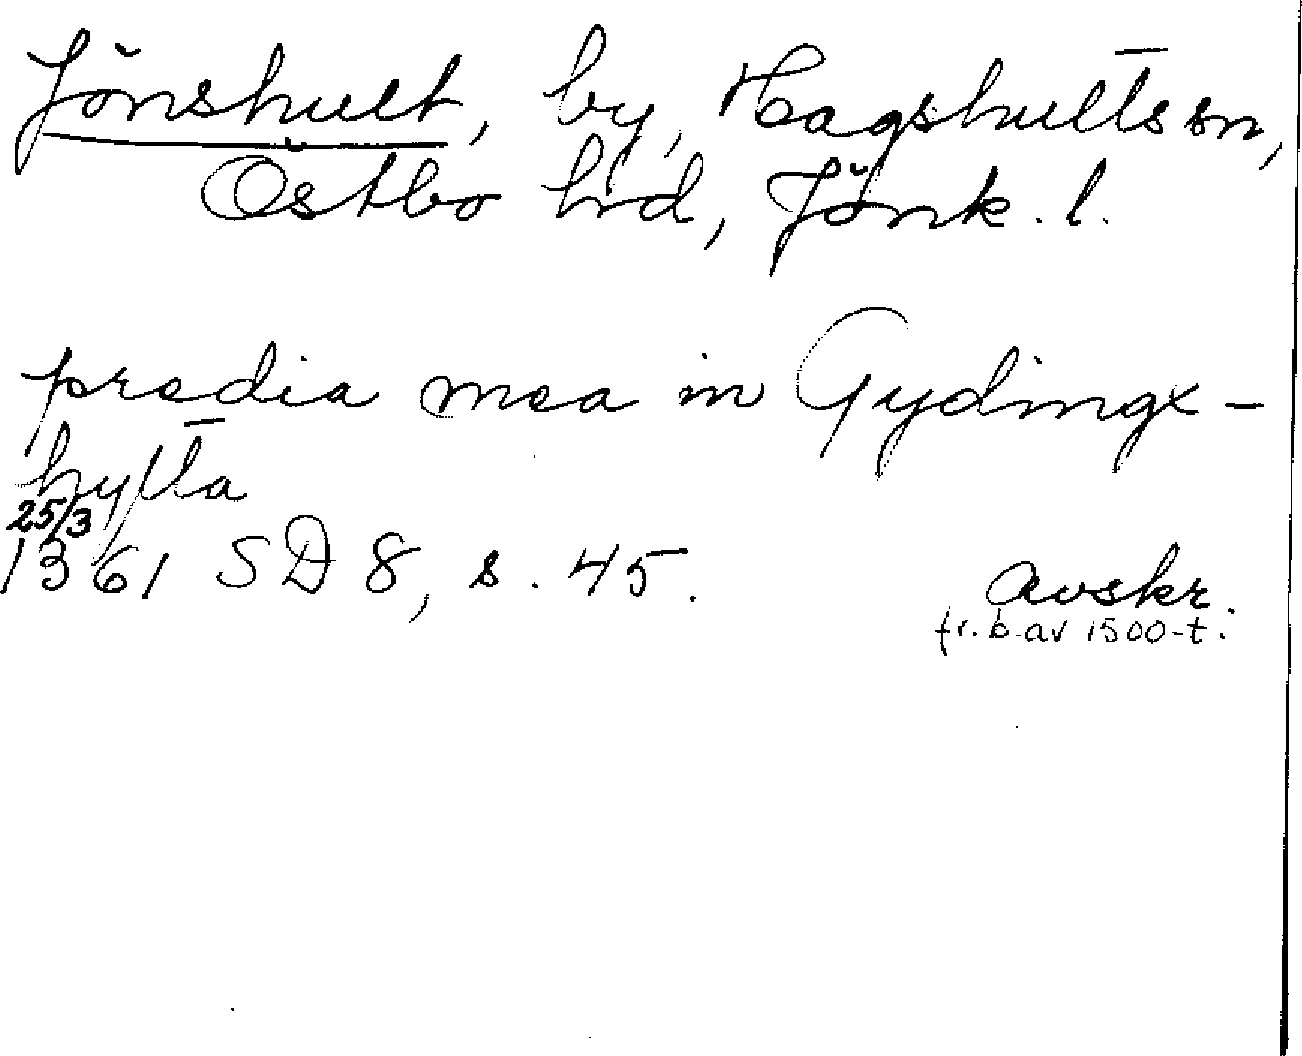 Jönshult, by, Hagshults sn,
Östbo hd, Jönk. l.
predia mea in Gydingx-
hylta
25/3
1361 SD 8, s. 45.
Avskr.
fr. b. av 1500-t.